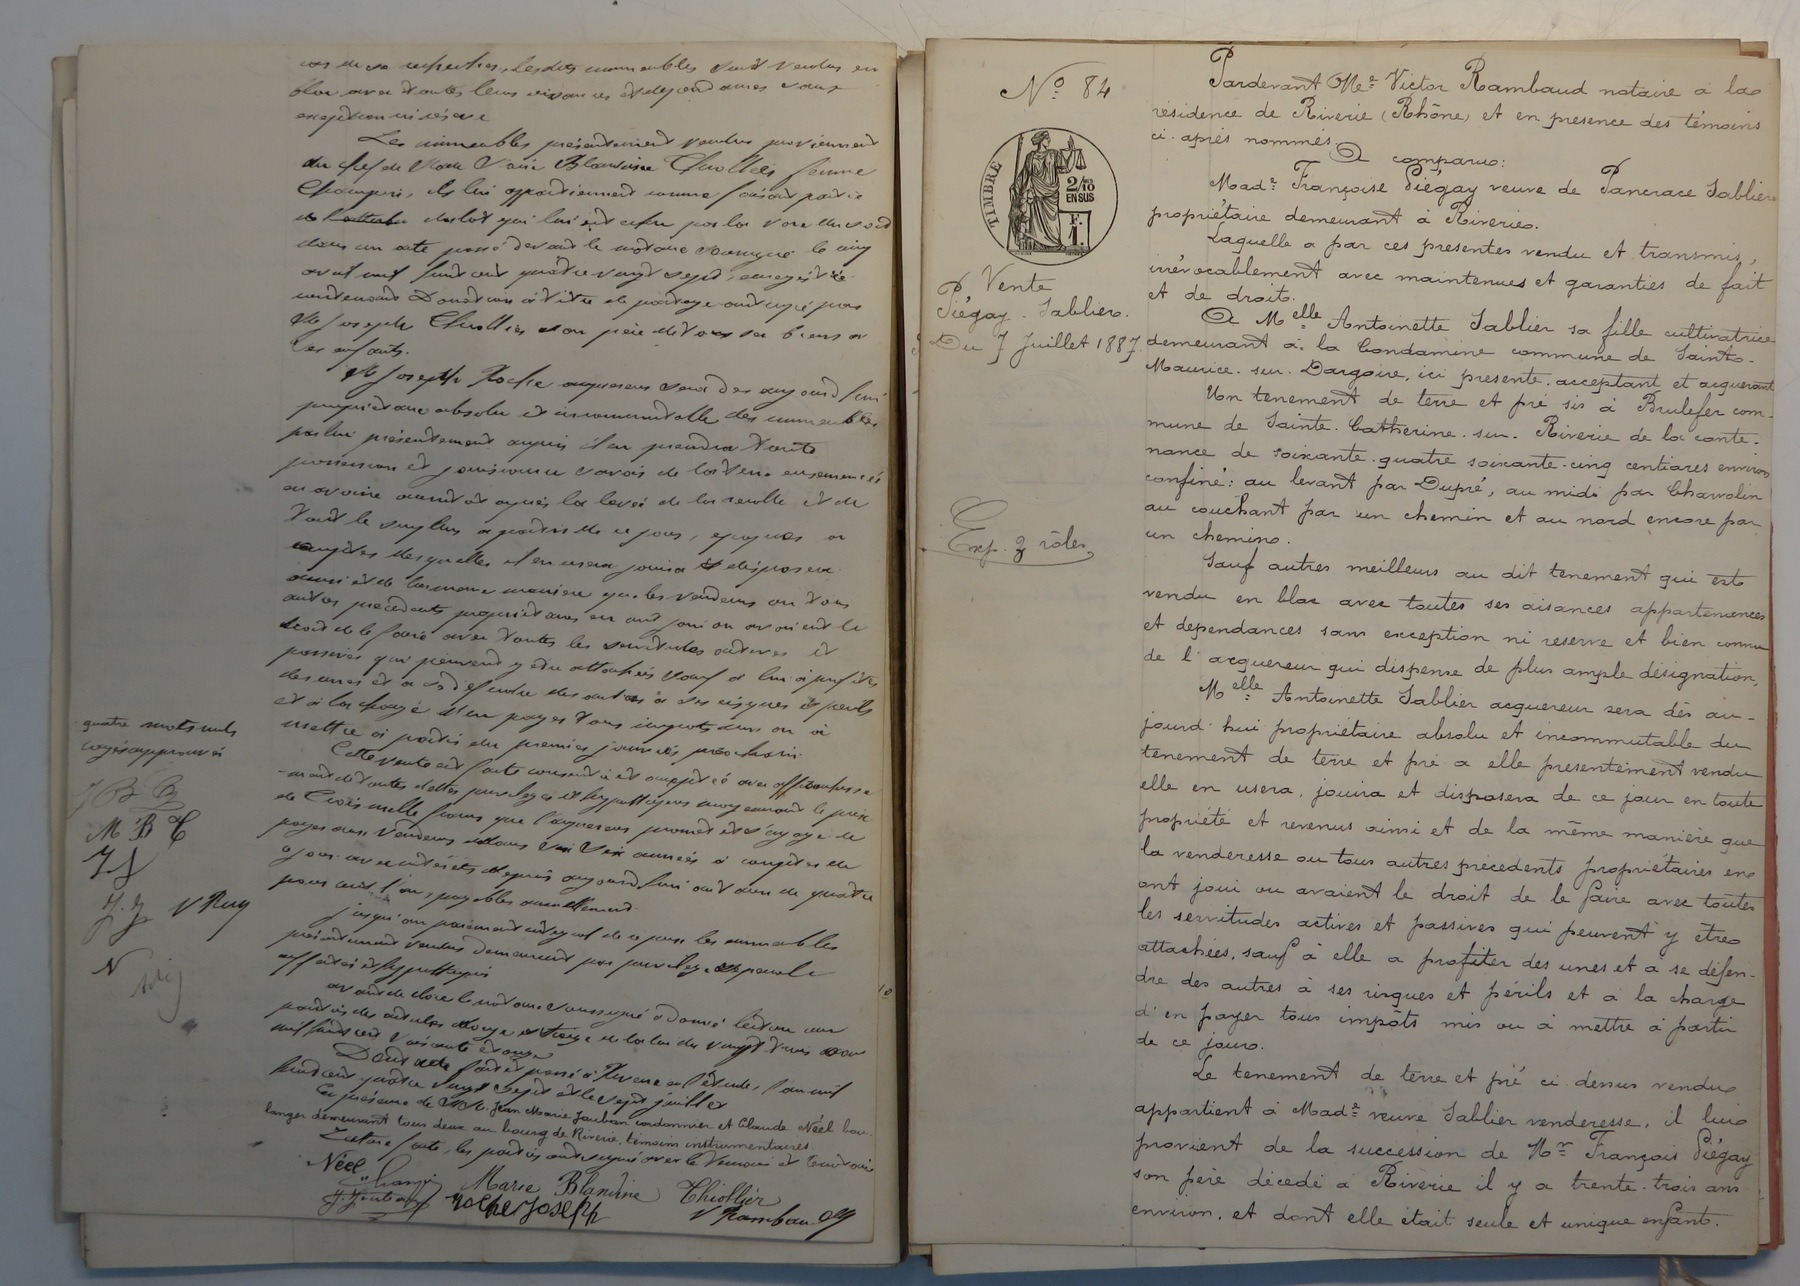 exception ni réserve
Les immeubles présentement vendus proviennent
du chef de Made Marie Blandine Thiollier femme
dans un acte passé devant le notaire soussigné le cinq
avril mil huit cent quatre vingt sept, enregistré
contenant Donation à titre de partage anticipé par
Mr Joseph Thiollier son père de tous ses biens à
ses enfants.
Mr Joseph Roche acquéreur sera dès aujourd'hui
propriétaire absolu et incommutable des immeubles
par lui présentement acquis il en prendra
possession et jouissance savoir de la terre ensemencée
en avoine aussitôt après la levée de la récolte et de
tout le surplus à partir de ce jour, époques à
compter desquelles il en usera jouira et disposera
ainsi et de la même manière que les vendeurs ou tous
autres précédents propriétaires en ont joui ou avaient le
droit de le faire avec toutes les servitudes actives et
passives qui peuvent y être attachées sauf à lui à profiter
des unes et à se défendre des autres à ses risques et périls
et à la charge d'en payer tous impôts mis ou à
mettre à partir du premier janvier prochain
Cette vente est faite consentie et acceptée avec affranchisse
-ment de toutes dettes privilèges et hypothèques moyennant le prix
de trois mille francs que l'acquéreur promet et s'engage de
payer aux vendeurs dans six années à compter de
ce jour avec intérêts depuis aujourd'hui au taux de quatre
pour cent l'an, payables annuellement.
Jusqu'au paiement intégral de ce prix les immeubles
présentement vendus demeurent par privilège spécial
affectés et hypothéqués
Avant de clore le notaire soussigné a donné lecture aux
parties des articles douze et treize de la loi du vingt trois août
mil huit cent soixante et onze
Dont acte fait et passé à Riverie en l'étude, l'an mil
huit cent quatre vingt sept et le sept juillet
En présence de MM. Jean Marie Jouban cordonnier et Claude Néel bou-
langer demeurant tous deux au bourg de Riverie, témoins instrumentaires
Lecture faite, les parties ont signé avec le notaire et témoins
quatre mots nuls
rayés approuvés
M B T
J. J V Ray
Néel
Marie Blandine Thiollier
Roche Joseph
V Rambaud
No 84
TIMBRE
2/10
EN SUS
F.
1.
Vente
Piégay - Sablier.
Du 7 Juillet 1887
Exp. 3 rôles
Pardevant Me Victor Rambaud notaire à la
résidence de Riverie (Rhône) et en présence des témoins
ci-après nommés.
A comparu:
Made Françoise Piégay veuve de Pancrace Sablier
propriétaire demeurant à Riverie.
Laquelle a par ces présentes vendu et transmis,
irrévocablement avec maintenues et garanties de fait
et de droit.
A Melle Antoinette Sablier sa fille cultivatrice
demeurant à la Condamine commune de Saint-
Maurice-sur-Dargoire, ici présente, acceptant et acquérant
Un tenement de terre et pré sis à Brulefer com-
mune de Sainte-Catherine-sur-Riverie de la conte-
nance de soixante-quatre soixante-cinq centiares environ
confiné: au levant par Dupré, au midi par Charvolin
au couchant par un chemin et au nord encore par
un chemin.
Sauf autres meilleurs au dit tenement qui est
vendu en bloc avec toutes ses aisances appartenances
et dépendances sans exception ni réserve et bien connu
de l'acquéreur qui dispense de plus ample désignation.
Melle Antoinette Sablier acquéreur sera dès au-
jourd'hui propriétaire absolu et incommutable du
tenement de terre et pré à elle présentement vendu
elle en usera, jouira et disposera de ce jour en toute
propriété et revenus ainsi et de la même manière que
la venderesse ou tous autres précédents propriétaires en
ont joui ou avaient le droit de le faire avec toutes
les servitudes actives et passives qui peuvent y être
attachées, sauf à elle à profiter des unes et à se défen-
dre des autres à ses risques et périls et à la charge
d'en payer tous impôts mis ou à mettre à partir
de ce jour.
Le tenement de terre et pré ci-dessus vendu
appartient à Made veuve Sablier venderesse, il lui
provient de la succession de Mr François Piégay
son père décédé à Riverie il y a trente-trois ans
environ, et dont elle était seule et unique enfant.